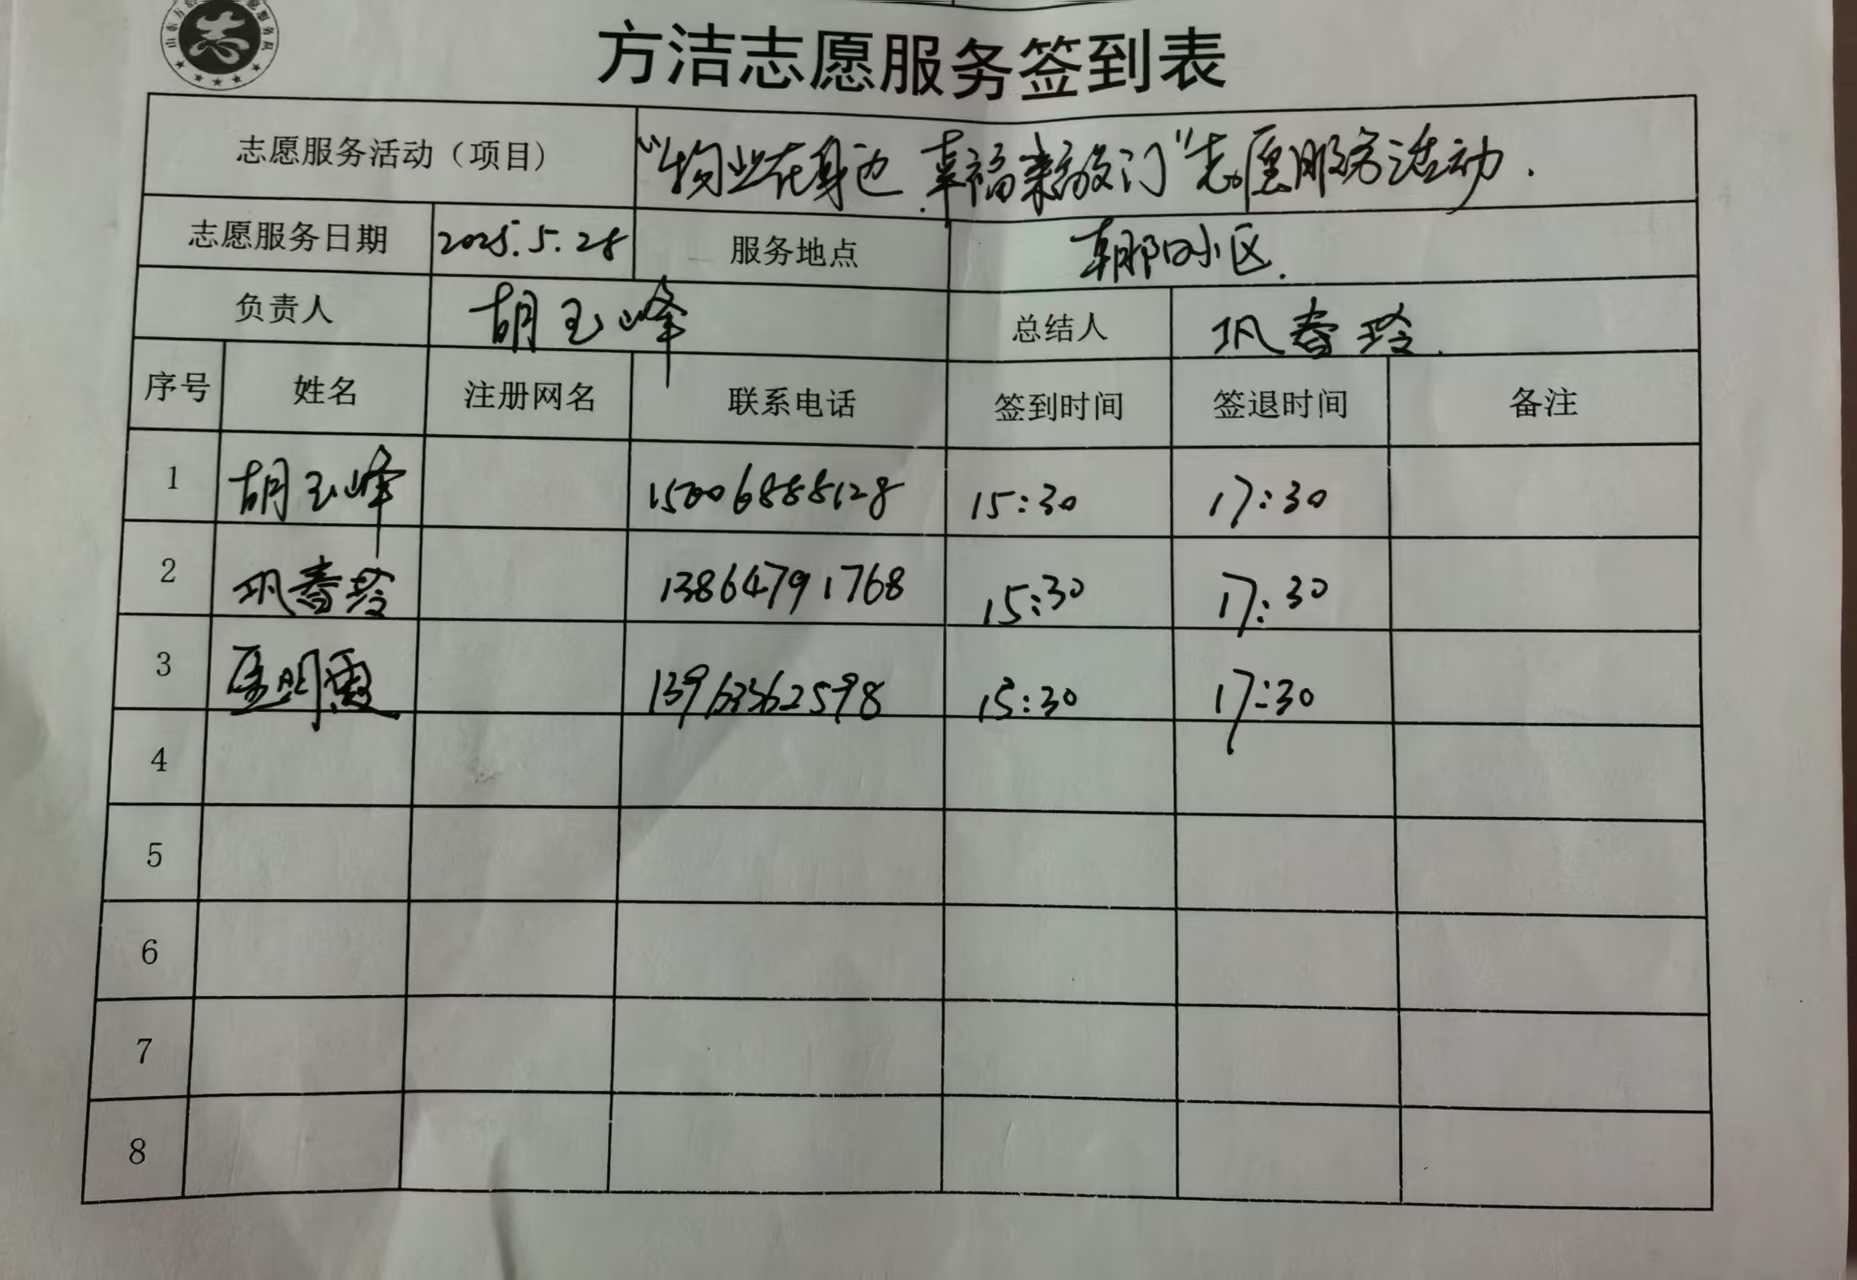 方洁志愿服务签到表
志愿服务活动（项目） “物业在身边 幸福来敲门”志愿服务活动.
志愿服务日期 2025.5.28 服务地点 小区.
负责人 胡玉峰 总结人 巩春玲.
序号 姓名 注册网名 联系电话 签到时间 签退时间 备注
1 胡玉峰 15006888128 15:30 17:30
2 巩春玲 13864791768 15:30 17:30
3 13963362598 15:30 17:30
4
5
6
7
8